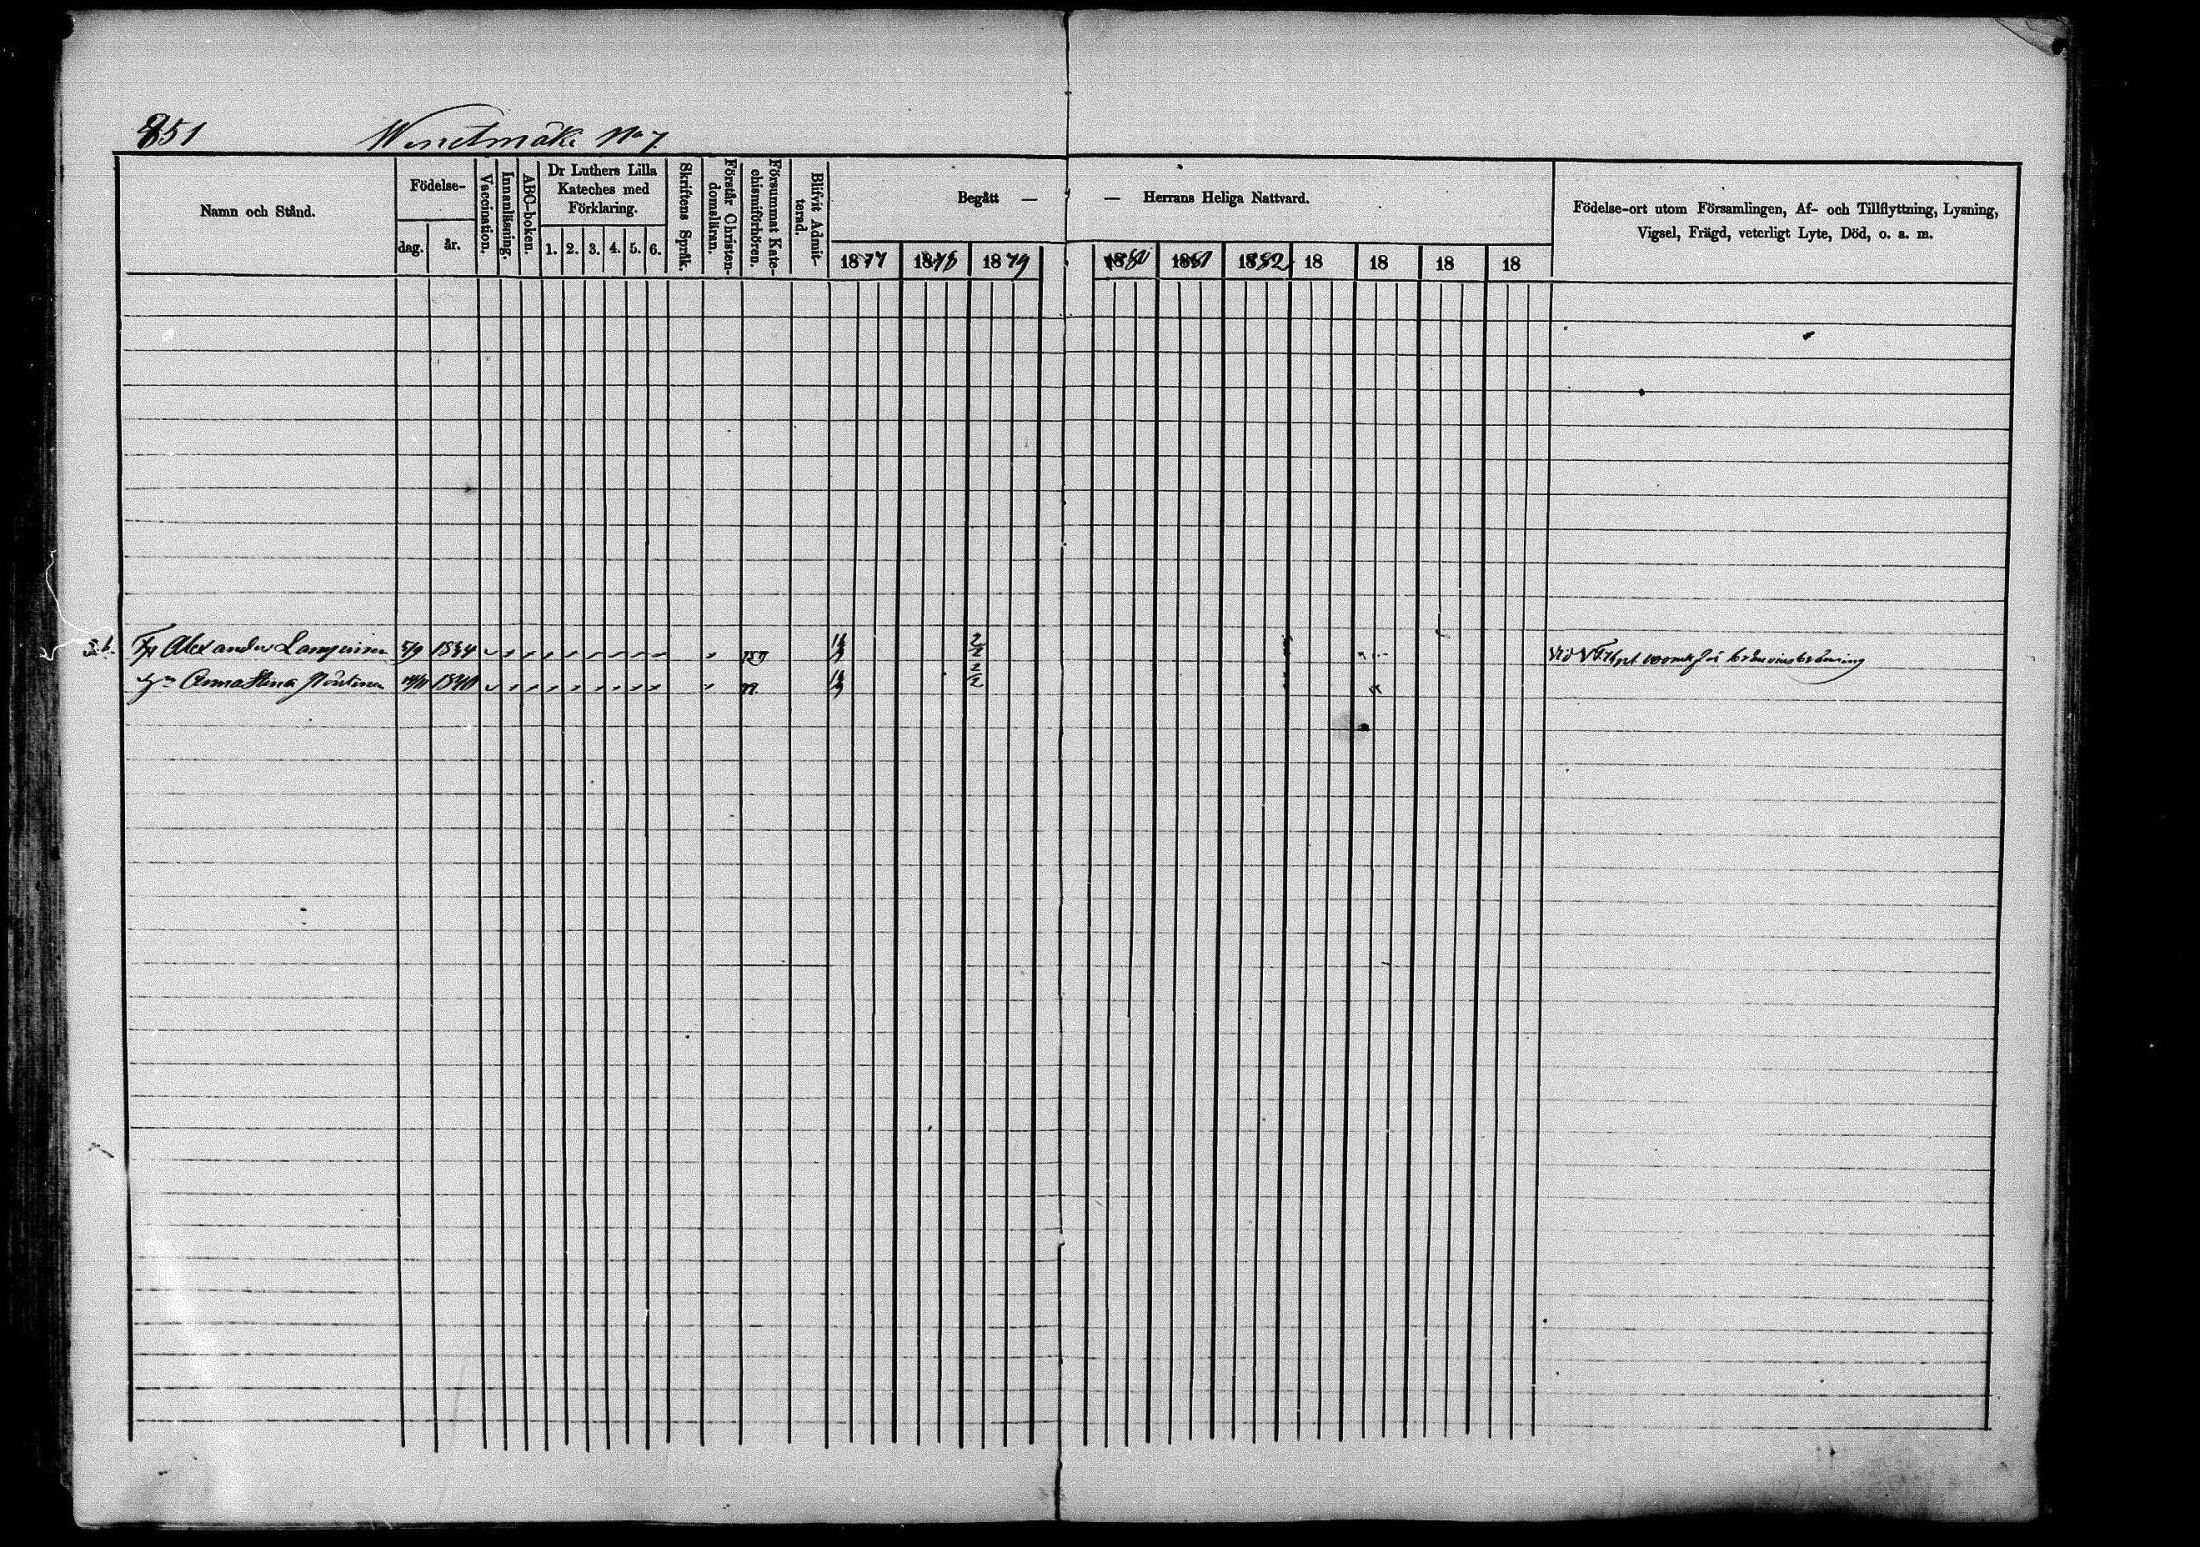 851
No 7
Namn och Stånd.
Födelse-
dag.
år.
Vaccination.
Innanläsning.
ABC-boken.
Dr Luthers Lilla
Kateches med
Förklaring.
1. 2. 3. 4. 5. 6.
Skriftens Språk.
Förstår Christen-
domsläran.
Försummat Kate-
chismiförhören.
Blifvit Admit-
terad.
Begått —
— Herrans Heliga Nattvard.
1877 1878 1879 1880 1881 1882 18 18 18 18
Födelse-ort utom Församlingen, Af- och Tillflyttning, Lysning,
Vigsel, Frägd, veterligt Lyte, Död, o. s. m.
Alexander 5/9 1834 2/2
Anna Stina 2/2